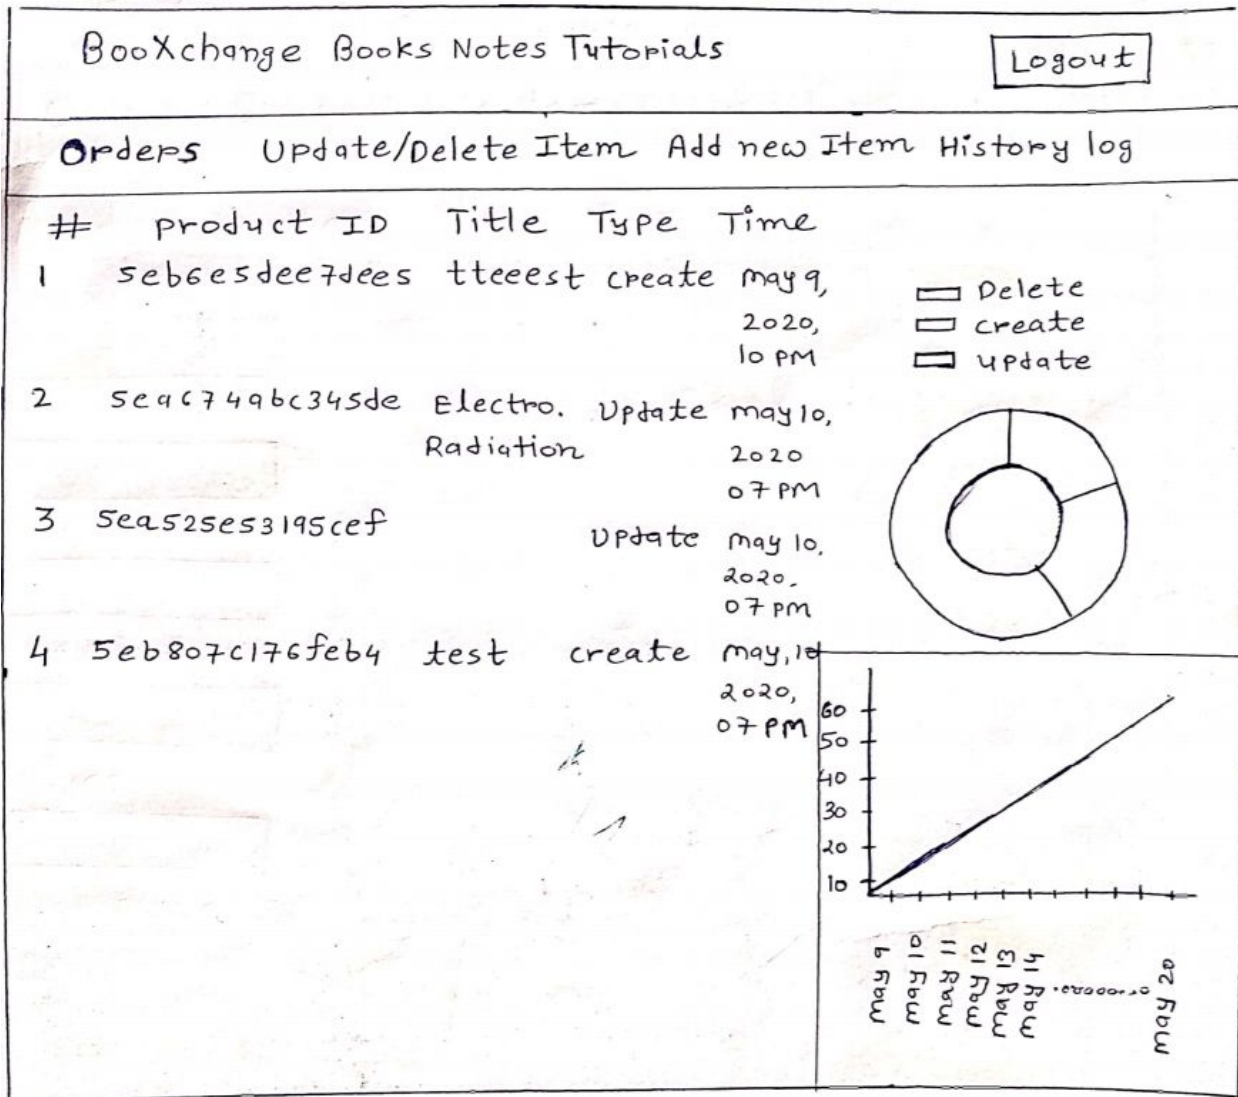 BooXchange Books Notes Tutorials Logout
Orders Update/Delete Item Add new Item History log
# product ID Title Type Time
1 5eb6e5dee7dees tteeest create may 9,
2020,
10 PM
Delete
create
update
2 5eac74abc345de Electro. Update may 10,
Radiation 2020
07 PM
3 5ea525e53195cef Update may 10,
2020.
07 PM
4 5eb807c176feb4 test create may, 10
2020,
07 PM
60
50
40
30
20
10
may 9
may 10
may 11
may 12
may 13
may 14
may 20